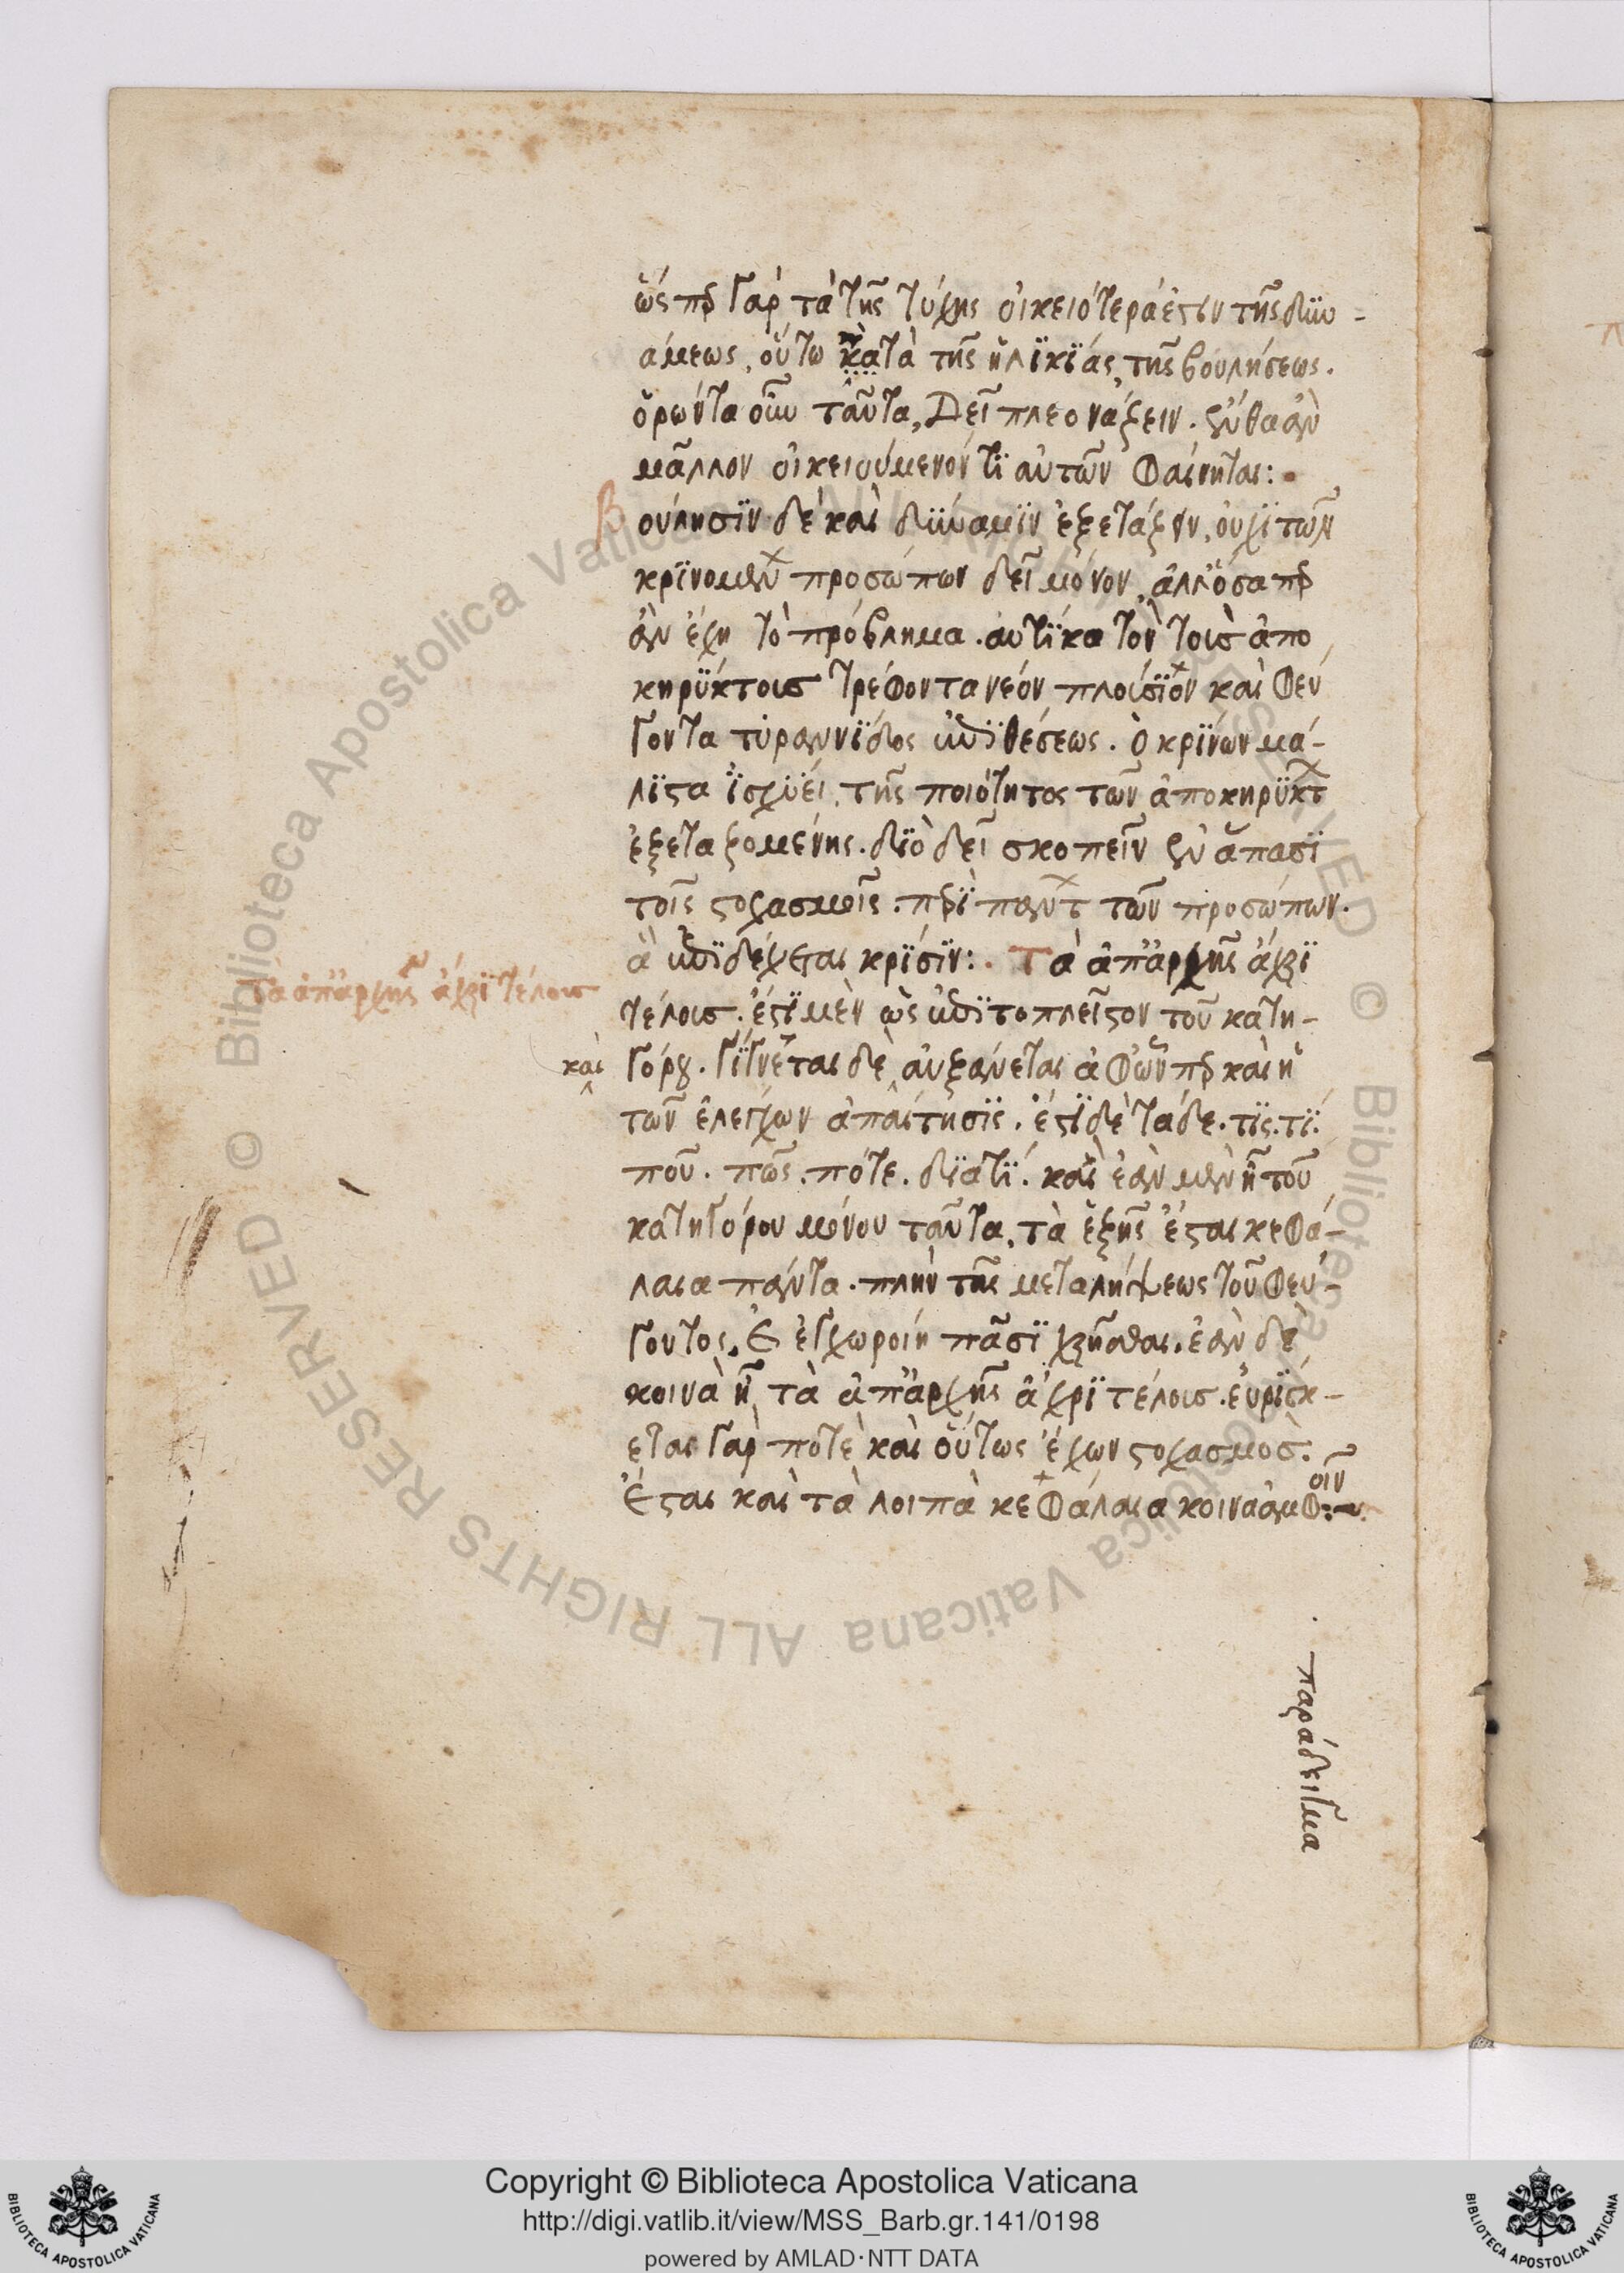 ὥς περ γαρ τὰ τῆς τύχης οἰκειότερά ἐστιν τῆς δυν-
άμεως, οὕτω τὰ κατὰ τῆς ἡλϊκϊάς, τῆς βουλήσεως.
ὁρῶντα οὖν ταῦτα, Δεῖ πλεονάζειν. ἔνθα ἂν
μᾶλλον οἰκειούμενόν τϊ αὐτῶν φαίνηται:
Βούλησϊν δὲ καὶ δύναμϊν ἐξετάζειν, οὐχϊ τῶν
κρϊνομένων προσώπων δεῖ μόνον, ἀλλ' ὅσα περ
ἂν ἔχη τὸ πρόβλημα. αὐτίκα τὸν τοὺς ἀπο
κηρΰκτους τρέφοντα νέον πλούσϊον καὶ φεύ
γοντα τυραννϊδος ἐπϊθέσεως. ὁ κρϊνων μά-
λϊστα ἰσχύει, τῆς ποιότητος τῶν ἀποκηρΰκτων
ἐξεταζομένης. δϊὸ δεῖ σκοπεῖν ἐν ἅπασϊ
τοῖς στοχασμοῖς. περὶ πάντων τῶν προσώπων.
ἃ ἐπϊδέχεται κρϊσϊν: Τὰ ἀπ' ἀρχῆς ἄχρϊ
τέλους. ἔστϊ μὲν ὡς ἐπϊτοπλεῖστον τοῦ κατη-
γόρου. γΐγνεται δὲ αὐξάνεται ἀφ' ὧν περ καὶ ἡ
τῶν ἐλέγχων ἀπαίτησϊς. ἔστϊ δὲ τάδε. τϊς. τϊ.
ποῦ. πῶς. πότε. δϊατϊ. καὶ ἐὰν μὲν ἦ τοῦ
κατηγόρου μόνου ταῦτα, τὰ ἑξῆς ἔσται κεφά-
λαια πάντα. πλὴν τῆς μεταλήψεως τοῦ φεύ-
γοντος, Εἰ ἐγχωροίη πᾶσϊ χρῆσθαι. ἐὰν δὲ
κοινὰ ἦ τὰ ἀπ' ἀρχῆς ἄχρϊ τέλους. εὑρϊσκ-
εται γὰρ ποτὲ καὶ οὕτως ἔχων στοχασμοσ.
Ἔσται καὶ τὰ λοιπὰ κεφάλαια κοινὰ ἀμφοῖν:~
Τὰ ἀπ' ἀρχῆς ἄχρϊ τέλους
καὶ
παράδειγμα
Copyright © Biblioteca Apostolica Vaticana
http://digi.vatlib.it/view/MSS_Barb.gr.141/0198
powered by AMLAD·NTT DATA
BIBLIOTECA APOSTOLICA VATICANA
BIBLIOTECA APOSTOLICA VATICANA
© Biblioteca Apostolica Vaticana ALL RIGHTS RESERVED